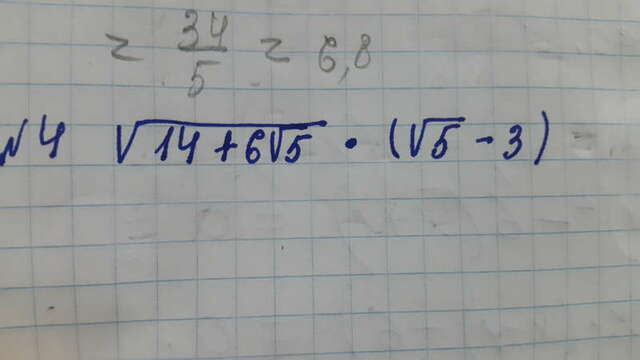 = 34/5 = 6,8
№4 √(14+6√5) · (√5 - 3)